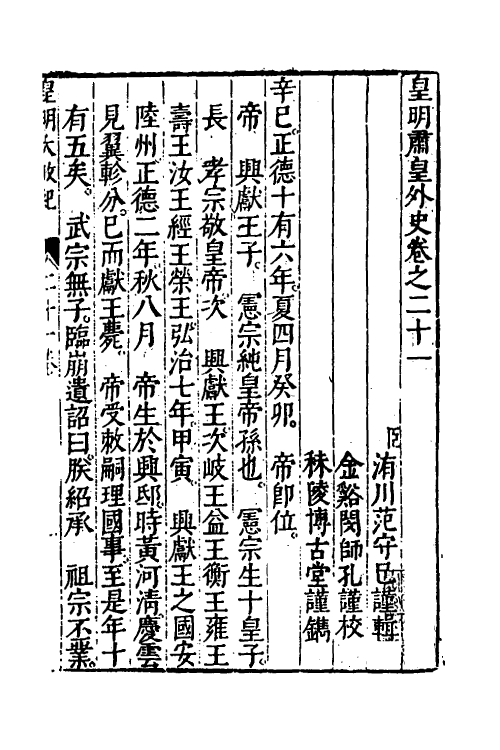 皇明肅皇外史卷之二十一
洧川范守巳謹輯
金谿閔師孔謹校
秣陵博古堂謹鐫
辛巳正德十有六年。夏四月癸卯。　帝即位。
帝　興獻王子。　憲宗純皇帝孫也。　憲宗生十皇子。
長　孝宗敬皇帝次　興獻王次岐王益王衡王雍王
壽王汝王涇王榮王弘治七年。甲寅　興獻王之國安
陸州正德二年秋八月　帝生於興邸。時黃河清慶雲
見翼軫分。巳而獻王薨。　帝受敕嗣理國事至是年十
有五矣。　武宗無子。臨崩遺詔曰。朕紹承　祖宗丕業。
皇明大政記　二十一卷